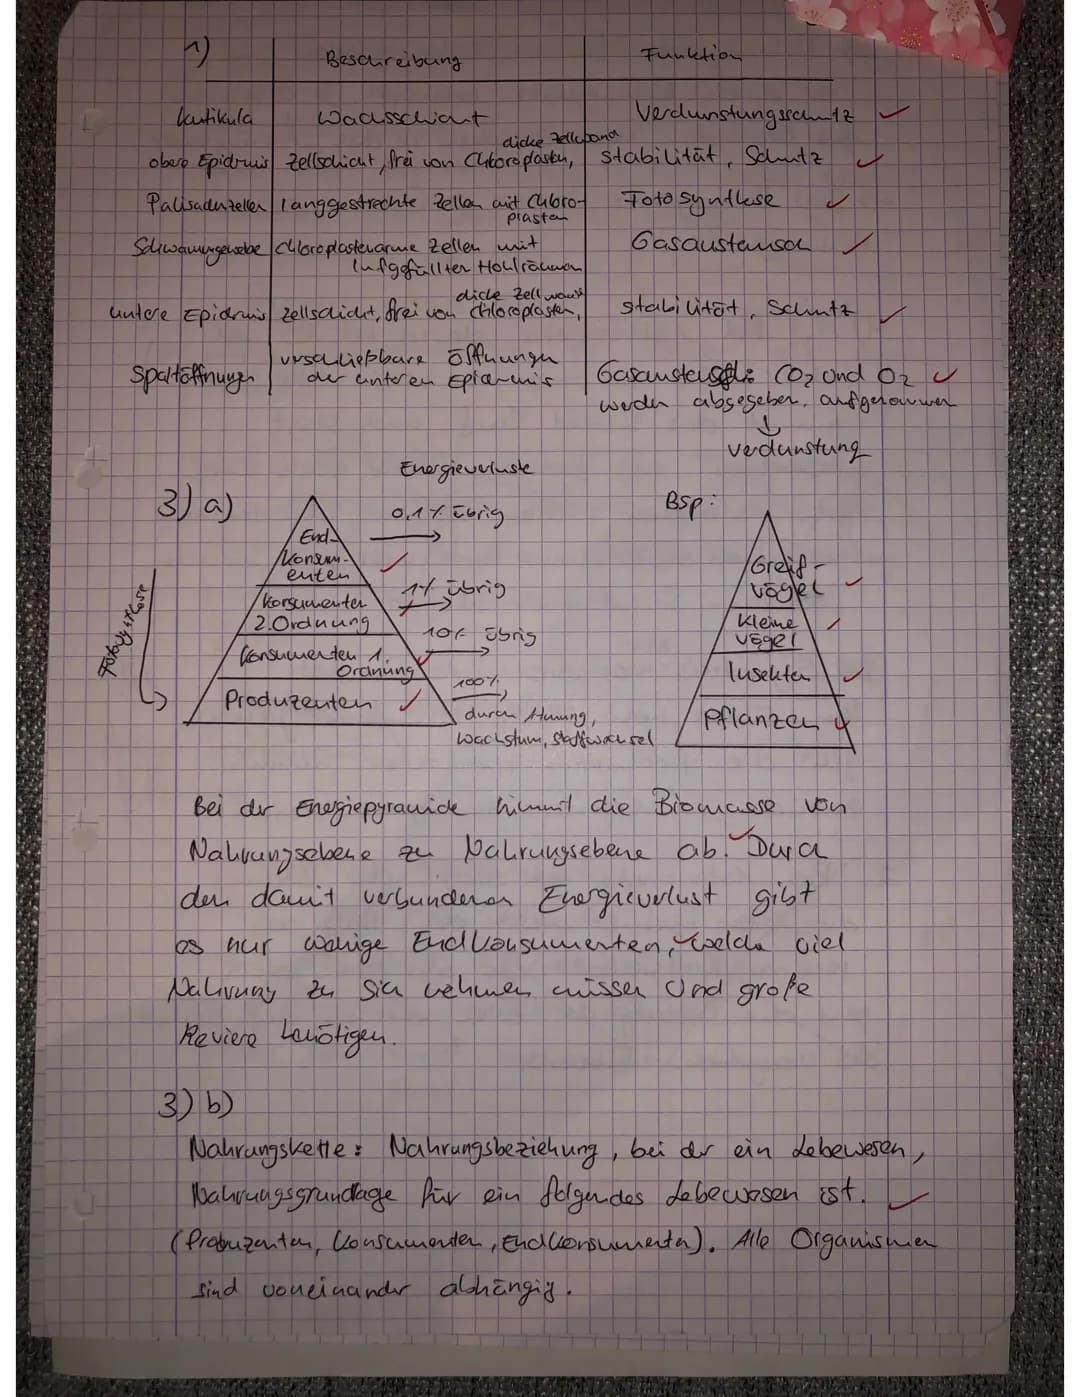 1) Beschreibung Funktion
Kutikula Wachsschicht Verdunstungsschutz
dicke Zellwand
obere Epidermis Zellschicht, frei von Chloroplasten, stabilität, Schutz
Palisadenzellen langgestreckte Zellen mit Chloro- Fotosynthese
plasten
Schwammgewebe Chloroplastenarme Zellen mit Gasaustausch
luftgefüllten Hohlräumen
dicke Zellwand
untere Epidermis Zellschicht, frei von Chloroplasten, stabilität, Schutz
verschließbare Öffnungen
Spaltöffnungen der unteren Epidermis Gasaustausch: CO2 und O2
werden abgegeben, aufgenommen
↓
Verdunstung
Energieverluste
3) a) Bsp:
0,1% übrig
End-
konsum-
enten
Greif-
vögel
1% übrig
Konsumenten
2. Ordnung
Kleine
Vögel
10% übrig
Konsumenten 1.
Ordnung
Insekten
100%
Produzenten
Pflanzen
durch Atmung,
Wachstum, Stoffwechsel
Fotosynthese
Bei der Energiepyramide nimmt die Biomasse von
Nahrungsebene zu Nahrungsebene ab. Durch
den damit verbundenen Energieverlust gibt
es nur wenige Endkonsumenten, welche viel
Nahrung zu sich nehmen müssen und große
Reviere benötigen.
3) b)
Nahrungskette: Nahrungsbeziehung, bei der ein Lebewesen,
Nahrungsgrundlage für ein folgendes Lebewesen ist.
(Produzenten, Konsumenten, Endkonsumenten). Alle Organismen
sind voneinander abhängig.